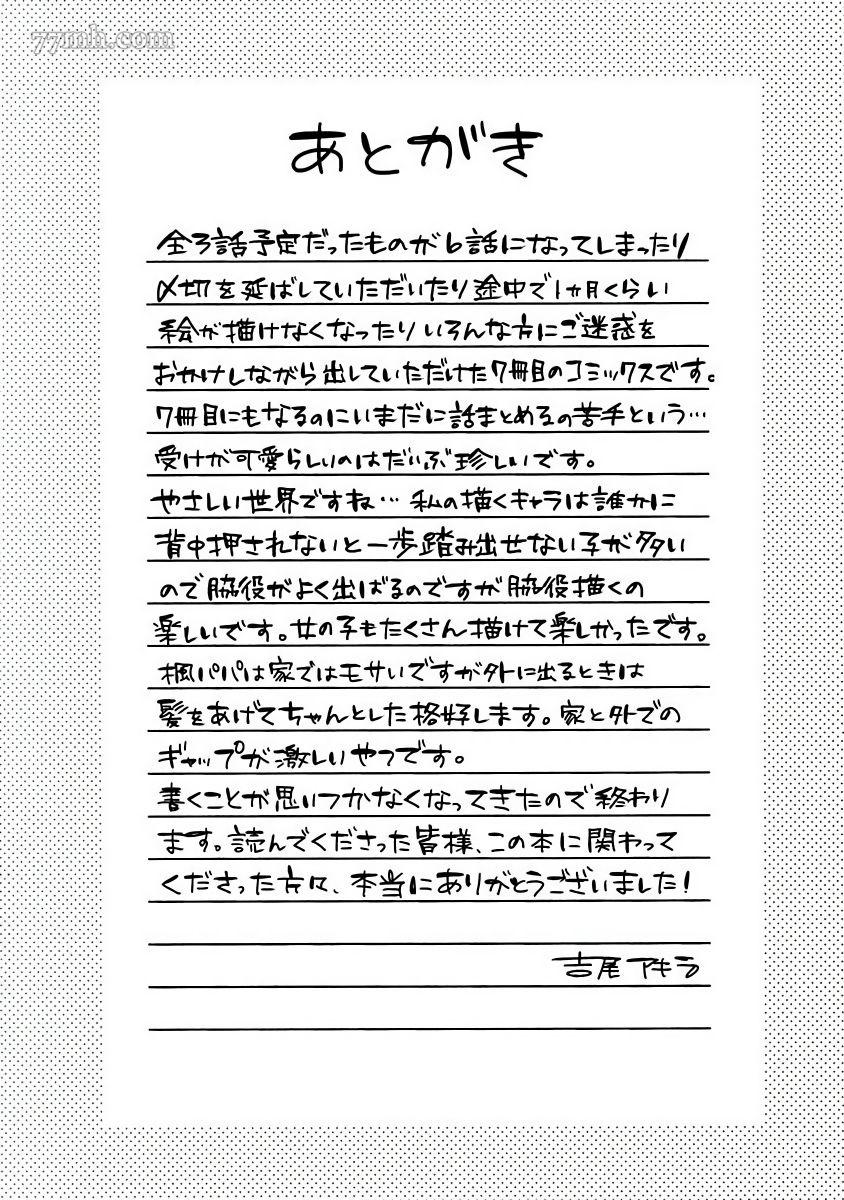 77mh.com
あとがき
全3話予定だったものが6話になってしまったり
〆切を延ばしていただいたり途中で1ヵ月くらい
絵が描けなくなったりいろんな方にご迷惑を
おかけしながら出していただけた7冊目のコミックスです。
7冊目にもなるのにいまだに話まとめるの苦手という…
受けが可愛らしいのはだいぶ珍しいです。
やさしい世界ですね…私の描くキャラは誰かに
背中押されないと一歩踏み出せない子が多い
ので脇役がよく出ばるのですが脇役描くの
楽しいです。女の子もたくさん描けて楽しかったです。
楓パパは家ではモサいですが外に出るときは
髪をあげてちゃんとした格好します。家と外での
ギャップが激しいやつです。
書くことが思いつかなくなってきたので終わり
ます。読んでくださった皆様、この本に関わって
くださった方々、本当にありがとうございました!
吉尾アキラ